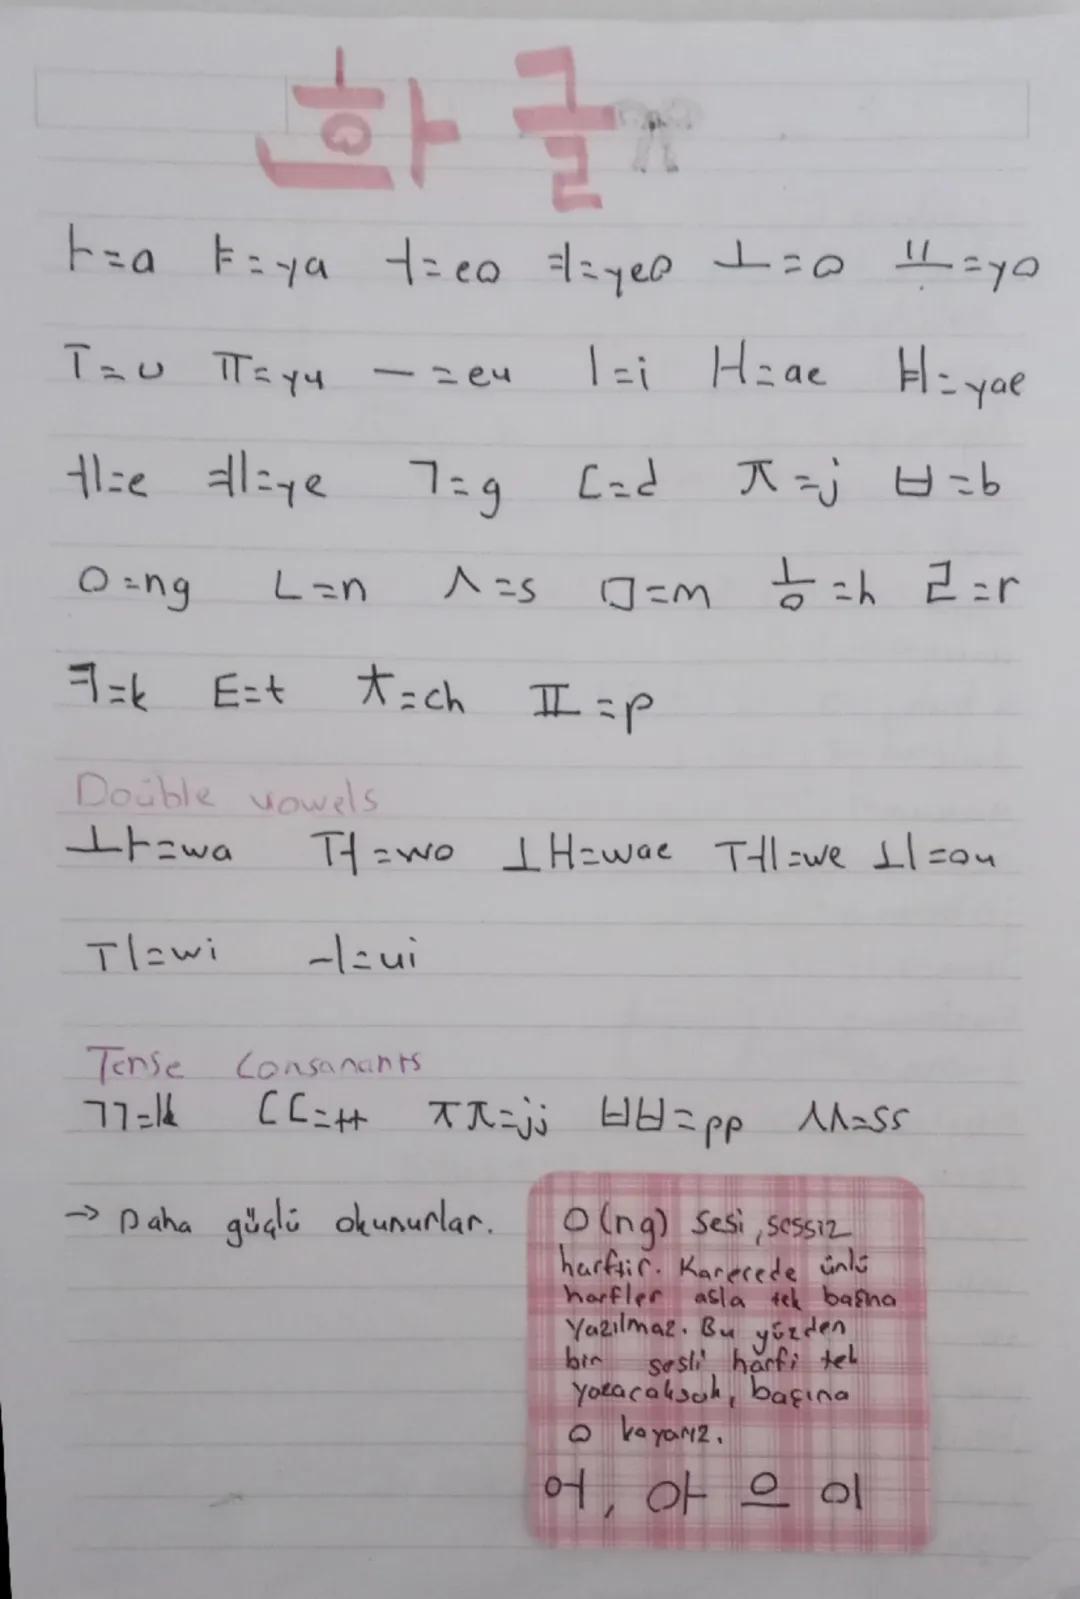 화글
ㅏ=a ㅑ=ya ㅓ=eo ㅕ=yeo ㅗ=o ㅛ=yo
ㅜ=u ㅠ=yu ㅡ=eu ㅣ=i ㅐ=ae ㅒ=yae
ㅔ=e ㅖ=ye ㄱ=g ㄷ=d ㅈ=j ㅂ=b
ㅇ=ng ㄴ=n ㅅ=s ㅁ=m ㅎ=h ㄹ=r
ㅋ=k ㅌ=t ㅊ=ch ㅍ=p
Double vowels
ㅗㅏ=wa ㅜㅓ=wo ㅗㅐ=wae ㅜㅔ=we ㅗㅣ=ou
ㅜㅣ=wi ㅡㅣ=ui
Tense Consanants
ㄱㄱ=kk ㄷㄷ=tt ㅈㅈ=jj ㅂㅂ=pp ㅅㅅ=ss
→ Daha güçlü okunurlar.
ㅇ(ng) sesi, sessiz
harftir. Korecede ünlü
harfler asla tek başına
yazılmaz. Bu yüzden
bir sesli harfi tek
yazacaksak, başına
ㅇ koyarız.
어, 아 으 이